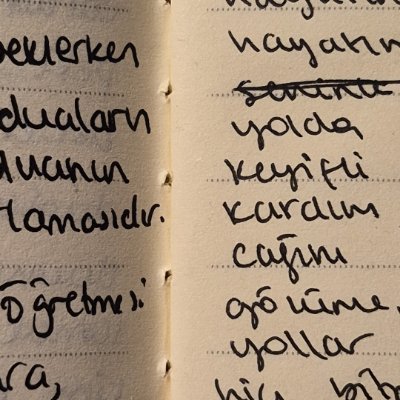 beklerken
duaların
duanın
tlamasıdır.
öğretmesi
ra,
hayatın
seninle
yolda
keyifli
kardım
cağını
yollar